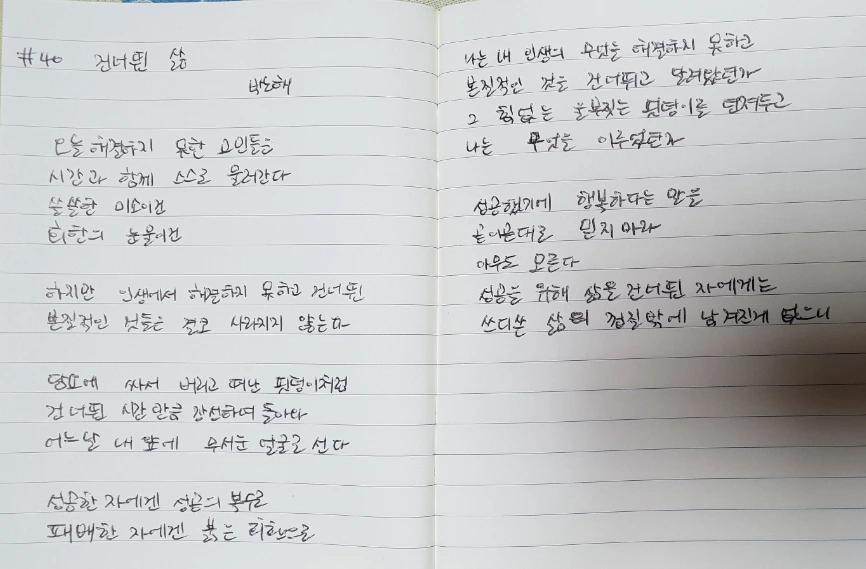 #40 건너뛴 삶
박노해
오늘 해결하지 못한 고민들은
시간과 함께 스스로 물러간다
쓸쓸한 미소이건
회한의 눈물이건
하지만 인생에서 해결하지 못하고 건너뛴
본질적인 것들은 결코 사라지지 않는다
담요에 싸서 버리고 떠난 핏덩이처럼
건너뛴 시간만큼 장성하여 돌아와
어느날 내 앞에 무서운 얼굴로 선다
성공한 자에겐 성공의 복수로
패배한 자에겐 붉은 회한으로
나는 내 인생의 무엇을 해결하지 못하고
본질적인 것을 건너뛰고 달려왔던가
그 힘없는 울부짖는 핏덩이를 던져두고
나는 무엇을 이루었던가
성공했기에 행복하다는 말을
곧이곧대로 믿지 마라
아무도 모른다
성공을 위해 삶을 건너뛴 자에게는
쓰디쓴 삶의 껍질밖에 남겨진게 없으니